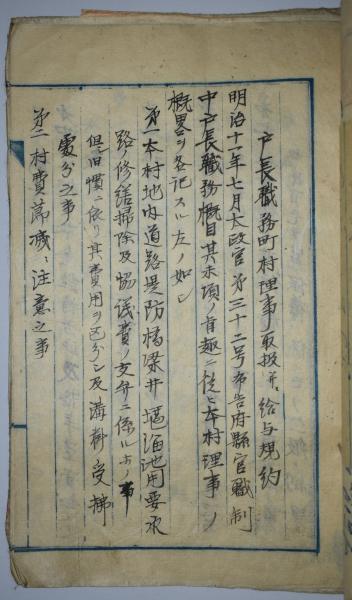 戸長職務町村理事取扱并ニ給与規約
明治十一年七月太政官第三十二号布告府縣官職制
中戸長職務概目其末項ノ旨趣ニ従ヒ本村理事ノ
概畧ヲ各記スル左ノ如シ
第一本村地内道路堤防橋梁井堰溜池用要水
路修繕掃除及協議費ノ支弁ニ係ルモノ事
但旧慣ニ依リ其費用ヲ区分シ及溝料受拂
處分之事
第二村費節減ニ注意之事